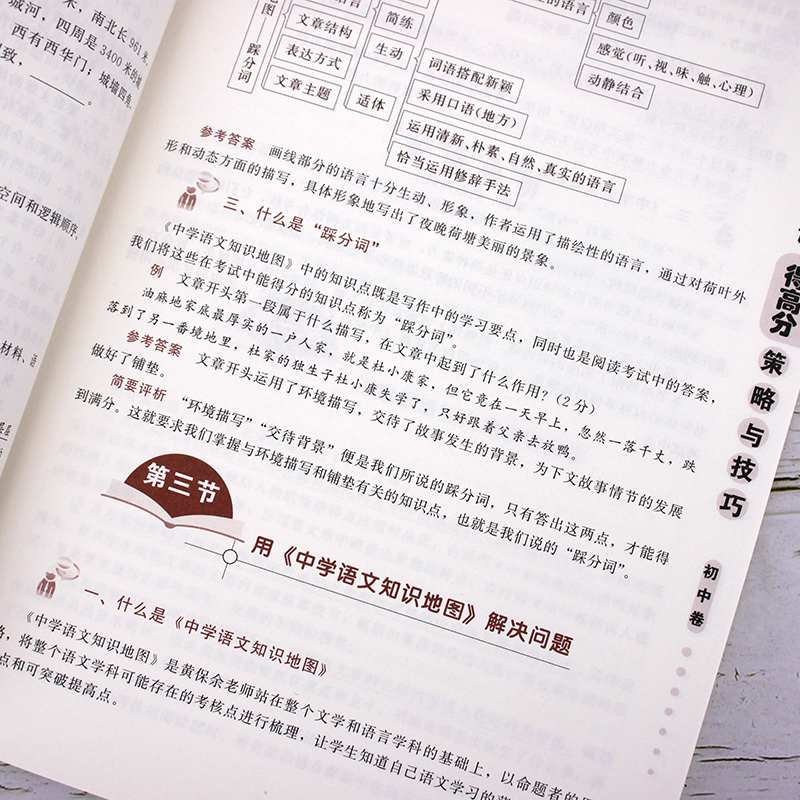 米，南北长961米，
城河，四周是3400米的城
西有西华门；城墙四角
致，
空间和逻辑顺序。
材料、
图
踩分词
文章结构
表达方式
文章主题
简练
生动
适体
词语搭配新颖
采用口语(地方)
运用清新、朴素、自然、真实的语言
恰当运用修辞手法
的语言
颜色
感觉(听、视、味、触、心理)
动静结合
参考答案 画线部分的语言十分生动、形象，作者运用了描绘性的语言，通过对荷叶外
形和动态方面的描写，具体形象地写出了夜晚荷塘美丽的景象。
三、什么是“踩分词”
《中学语文知识地图》中的知识点既是写作中的学习要点，同时也是阅读考试中的答案，
我们将这些在考试中能得分的知识点称为“踩分词”。
例 文章开头第一段属于什么描写，在文章中起到了什么作用？(2分)
油麻地家底最厚实的一户人家，就是杜小康家，但它竟在一天早上，忽然一落千丈，跌
落到了另一番境地里，杜家的独生子杜小康失学了，只好跟着父亲去放鸭。
参考答案 文章开头运用了环境描写，交待了故事发生的背景，为下文故事情节的发展
做好了铺垫。
简要评析 “环境描写”“交待背景”便是我们所说的踩分词，只有答出这两点，才能得
到满分。这就要求我们掌握与环境描写和铺垫有关的知识点，也就是我们说的“踩分词”。
第三节
用《中学语文知识地图》解决问题
一、什么是《中学语文知识地图》
《中学语文知识地图》是黄保余老师站在整个文学和语言学科的基础上，以命题者的
，将整个语文学科可能存在的考核点进行梳理，让学生知道自己语文学习的
点和可突破提高点。
得高分
策略与技巧
初中卷